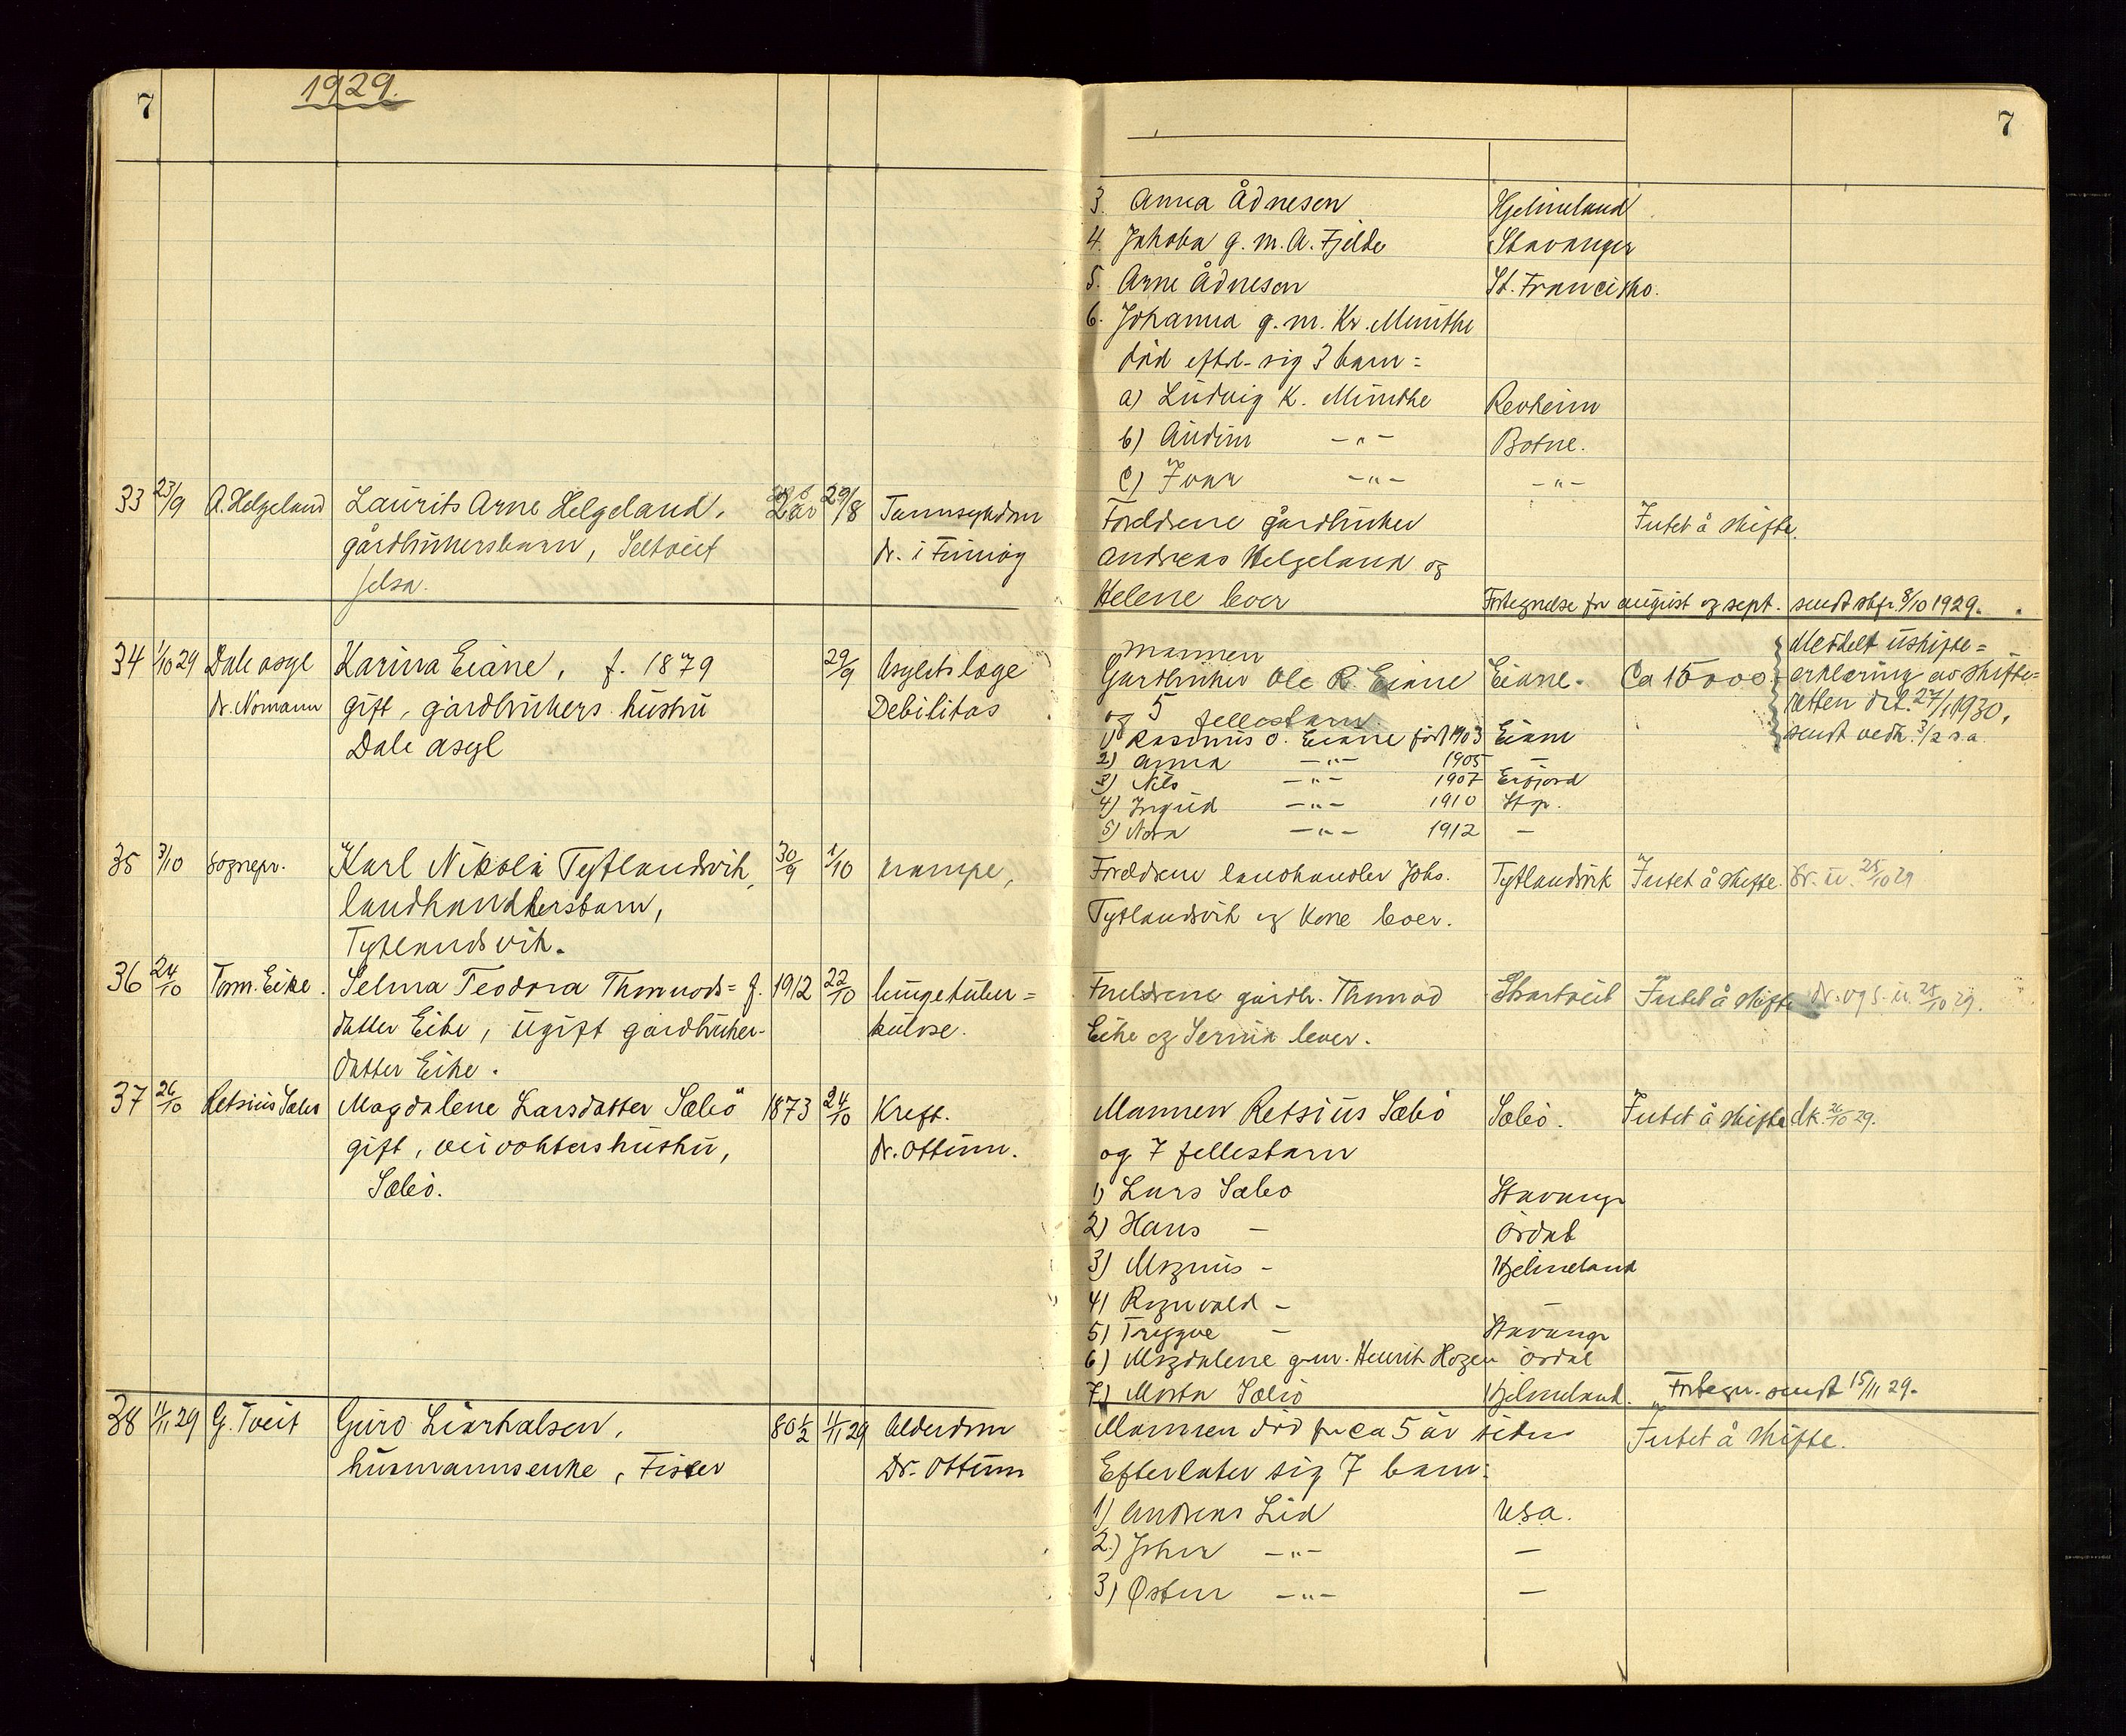 7
1929.
33 23/9 A. Helgeland Laurits Arne Helgeland, 2 år 29/8 Tarmsygdom
gårdbrukersbarn, Seltveit dr. i Finnøy
Jelsa.
34 1/10 29 Dale asyl Karina Eiane, f. 1879 29/9 Asylets læge
dr. Nomann gift, gårdbrukers hustru Debilitas
Dale asyl
35 3/10 sognepr. Karl Nikolai Tytlandsvik, 30/9 1/10 krampe,
landhandlersbarn,
Tytlandsvik.
36 24/10 Torm. Eike. Selma Teodora Thormods= f. 1912 22/10 lungetuber=
datter Eike, ugift gårdbruker- kulose.
datter Eike.
37 26/10 Retsius Sæbø Magdalene Larsdatter Sæbö 1873 24/10 Kreft.
gift, veivokters hustru, dr. Ottum.
Sæbö.
38 11/11 29 G. Tveit Guro Liarhalsen, 80 1/2 4/11 29 Alderdom
husmannsenke, Fister Dr. Ottum
7
3. Anna Ådnesen Hjelmeland
4. Jakoba g. m. A. Fjelde Stavanger
5. Arne Ådnesen St. Francisko.
6. Johanna g. m. Kr. Minthe
död efterl. sig 3 barn:
a) Ludvig K. Minthe Revheim
b) Audun —"— Botne.
c) Ivar —"— —"—
Foreldrene gårdbruker Intet å skifte.
Andreas Helgeland og
Helene lever Fortegnelse for august og sept. sendt skfr. 8/10 1929.
Mannen Meddelt uskifte=
Gardbruker Ole R. Eiane Eiane. Ca 15000.- erklæring av skifte=
og 5 fellesbarn retten dat. 27/1 1930,
1) Rasmus O. Eiane født 1903 Eiane sendt vedk. 3/2 s.a.
2) Anna —"— 1905 —
3) Nils —"— 1907 Erfjord
4) Ingrid —"— 1910 Stgr.
5) Nora —"— 1912 —
Foreldrene landhandler Johs. Tytlandsvik Intet å skifte. 25/10 29
Tytlandsvik og kone lever.
Foreldrene gårdbr. Thormod Skartveit Intet å skifte 25/10 29.
Eike og Serina lever.
Mannen Retsius Sæbö Sæbö. Intet å skifte dk. 26/10 29.
og 7 fellesbarn
1) Lars Sæbö Stavanger
2) Hans — Årdal
3) Magnus — Hjelmeland
4) Ragnvald —
5) Trygve — Stavanger
6) Magdalene g.m. Henrik Hagen Årdal
7) Marta Sæbö Hjelmeland. Fortegn. sendt 15/11 29.
Mannen död for ca 5 år siden Intet å skifte.
Efterlater sig 7 barn:
1) Andreas Lid USA.
2) Johan —"— —
3) Østen —"— —